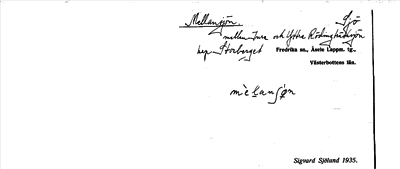 Mellansjön. Sjö
mellan Inre och Yttre Rödingträsksjön
hep Storberget Fredrika sn., Åsele Lappm. tg.,
Västerbottens län.
Sigvard Sjölund 1935.